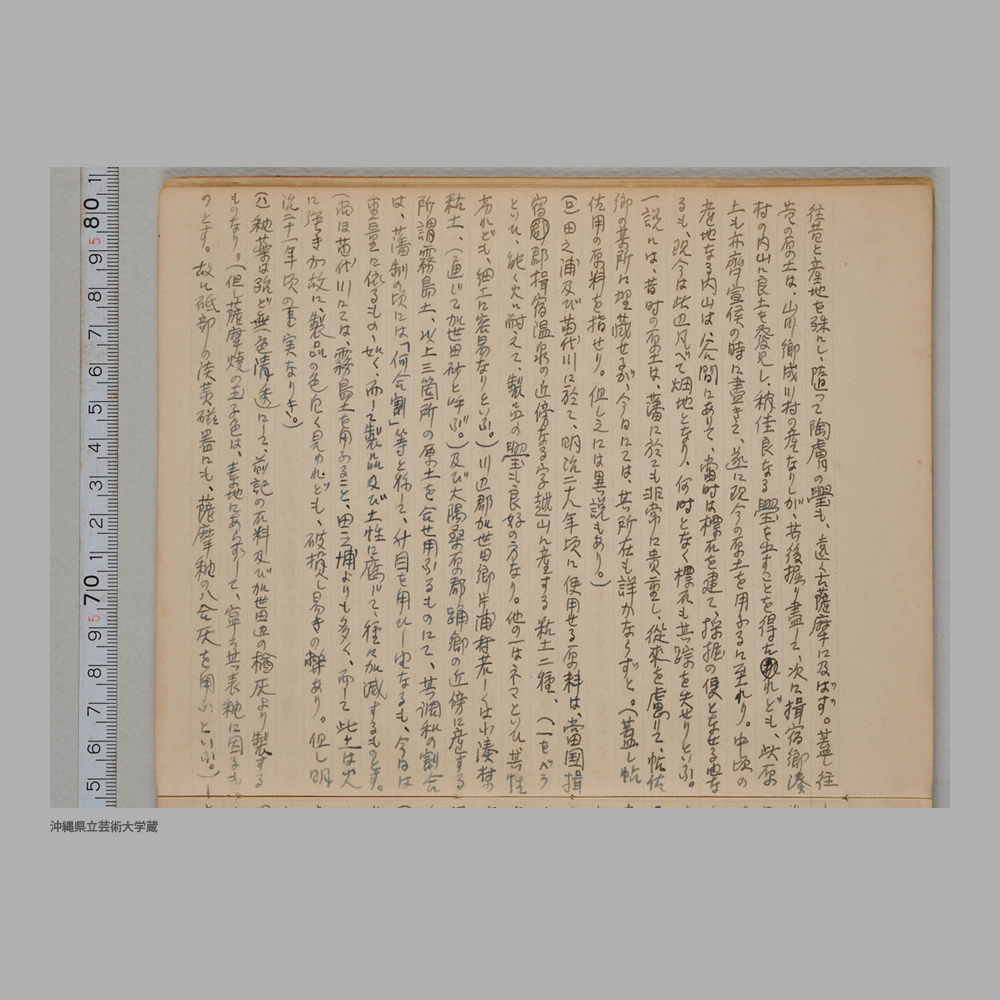 往昔と産地を殊にし、随って陶膚の璺も、遠く古薩摩に及ばず。蓋し往
昔の原土は、山川郷成川村の産なりしが、其後掘り盡して、次に揖宿郷湊
村の内山に良土を發見し、稍佳良なる璺を出すことを得たれども、此原
土も亦齊宣侯の時に盡きて、遂に現今の原土を用ふるに至れり。中頃の
産地なる内山は、谷間にありて、當時は標石を建て、採掘の便となせる由な
るも、現今は此辺凡べて畑地となり、何時となく標石も其踪を失せりといふ。
一説には、昔時の原土は、藩に於ても非常に貴重し、従来を慮りて、帖佐
郷の某所に埋蔵せるが、今日にては、其所在も詳かならずと。(蓋し帖
佐用の原料を指せり。但し之には異説もあり。)
(ロ)田之浦及び苗代川に於て、明治二十九年頃に使用せる原料は、當国揖
宿郡揖宿温泉の近傍なる字越山に産する粘土二種、(一をベラ
といひ、能く火に耐えて、製品の璺も良好の方なり。他の一はネマといひ、其性
劣れども、細工に容易なりといふ。)川辺郡加世田郷片浦村若しくは小湊村
粘土、(通じて加世田砂と呼ぶ。)及び大隅桑原郡踊郷の近傍に産する
所謂霧島土、以上三箇所の原土を合せ用ふるものにて、其調和の割合
は、藩制の頃には「何合割」等と称して、升目を用ひし由なるも、今日は
重量に依るものゝ如く、而して製品及び土性に應じて、種々加減するものとす。
(尚ほ苗代川にては、霧島土を用ふること、田之浦よりも多く、而して此土は火
に強きが故に、製品の色白く見ゆれども、破損し易きの弊あり。但し明
治二十一年頃の事実なりき。)
(ハ)釉薬は殆ど無色清透にして、前記の石料及び加世田辺の楢灰より製する
ものなり。(但し薩摩焼の玉子色は、素地にあらずして、寧ろ其表釉に因るも
のとす。故に砥部の淡黄磁器にも、薩摩釉の八合灰を用ふといふ。)
沖縄県立芸術大学蔵